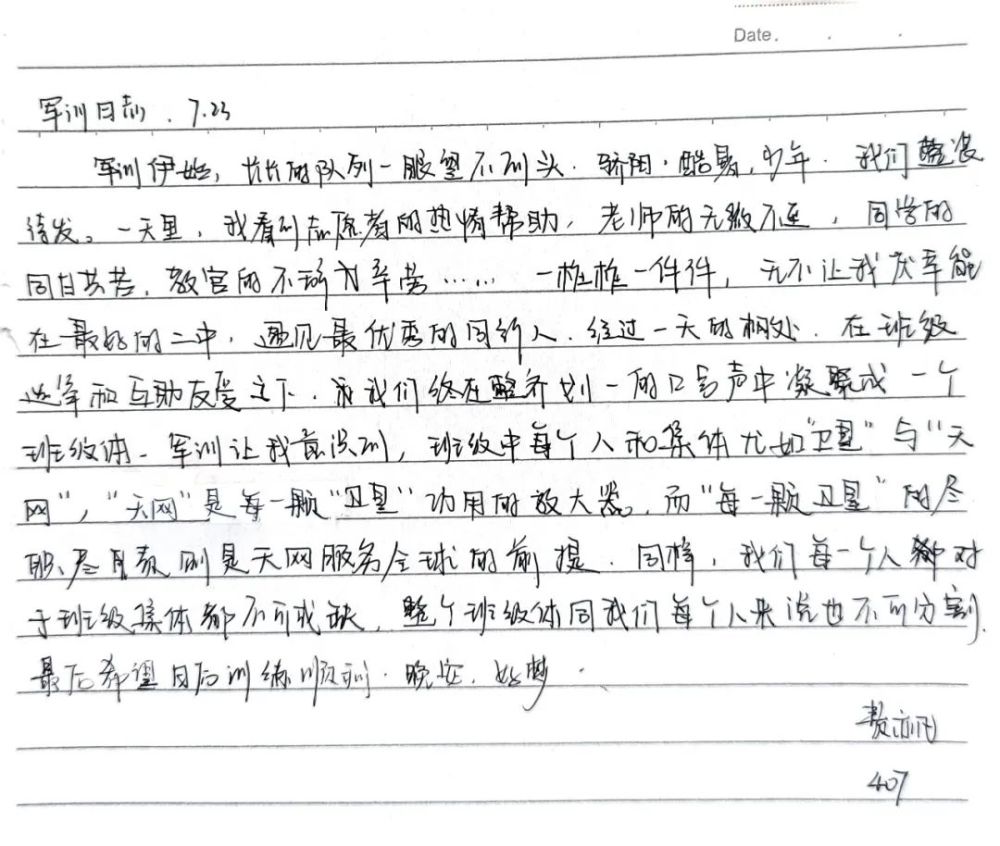 Date.
军训日志. 7.23
军训伊始，长长的队列一眼望不到头. 骄阳. 酷暑, 少年. 我们整装
待发。一天里，我看到志愿者的热情帮助, 老师的无微不至，同学的
同甘共苦, 教官的不辞辛劳…… 一桩桩一件件，无不让我庆幸能
在最好的二中，遇见最优秀的同行人. 经过一天的相处. 在班级
选举和互助友爱之下. 我们终在整齐划一的口号声中凝聚成一个
班级体. 军训让我意识到, 班级中每个人和集体尤如“卫星”与“天
网”, “天网”是每一颗“卫星”功用的放大器, 而“每一颗卫星”的尽
职尽责则是天网服务全球的前提. 同样, 我们每一个人对
于班级集体都不可或缺, 整个班级体同我们每个人来说也不可分割.
最后希望日后训练顺利. 晚安. 好梦.
407